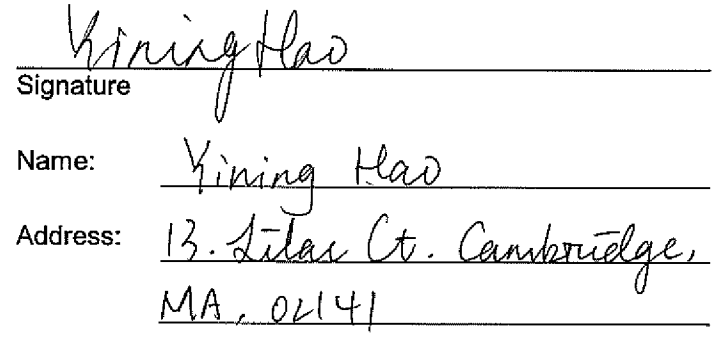 Yining Hao
Signature
Name: Yining Hao
Address: 13. Lilac Ct. Cambridge,
MA, 02141